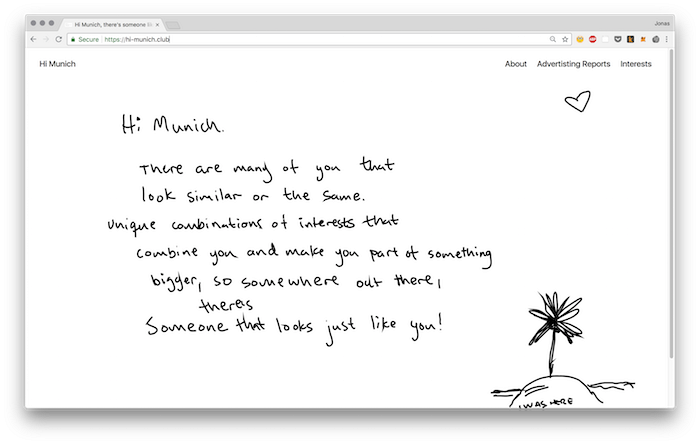 Hi Munich, there's someone lik
Jonas
Secure https://hi-munich.club
Hi Munich About Advertisting Reports Interests
Hi Munich.
There are many of you that
look similar or the same.
Unique combinations of interests that
combine you and make you part of something
bigger, so somewhere out there,
theres
Someone that looks just like you!
I WAS HERE